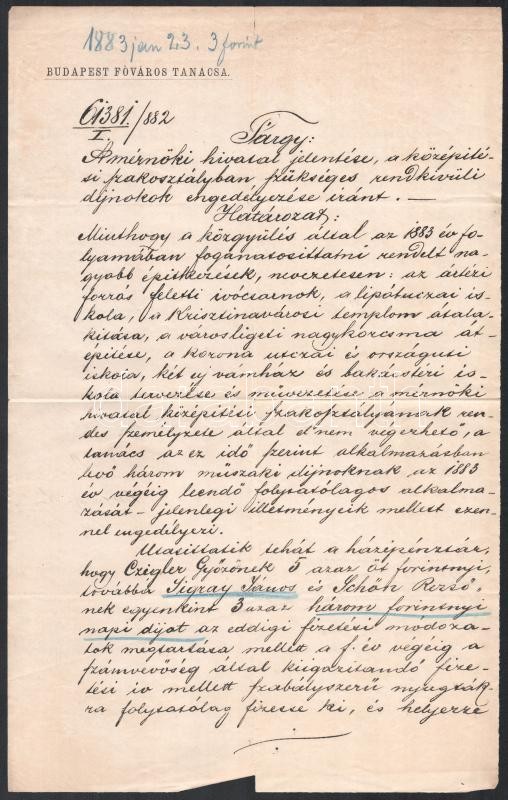 1883 jan 23. 3 forint
BUDAPEST FŐVÁROS TANÁCSA.
61381/882
I.
Tárgy:
A mérnöki hivatal jelentése, a középité-
si szakosztályban szükséges rendkivüli
dijnokok engedélyezése iránt. —
Határozat:
Miuthogy a közgyülés által az 1883 év fo-
lyamában foganatosittatni rendelt na-
gyobb épitkezések, nevezetesen: az ártézi
forrás feletti ivócsarnok, a lipótuczai is-
kola, a Krisztinavárosi templom átala-
kitása, a városligeti nagykorcsma át-
épitése, a korona utczai és országuti
iskola, két uj vámház és bakástéri is-
kola tervezése és művezetése, a mérnöki
hivatal középitési szakosztályának ren-
des személyzete által el nem végezhető, a
tanács az ez idő szerint alkalmazásban
levő három műszaki dijnoknak az 1883
év végéig leendő folytatólagos alkalma-
zását – jelenlegi illetményeik mellett ezen-
nel engedélyezi.
Utasittatik tehát a középénztár,
hogy Czigler Győzőnek 5 azaz öt forintnyi,
továbbá Sigray János és Schön Rezső
nek egyenkint 3 azaz három forintnyi
napi dijat az eddigi fizetési módoza-
tok megtartása mellett a f. év végéig a
számvevőség által kiigazitandó fize-
tési iv mellett szabályszerü nyugták-
ra folytatólag fizesse ki, és helyezze